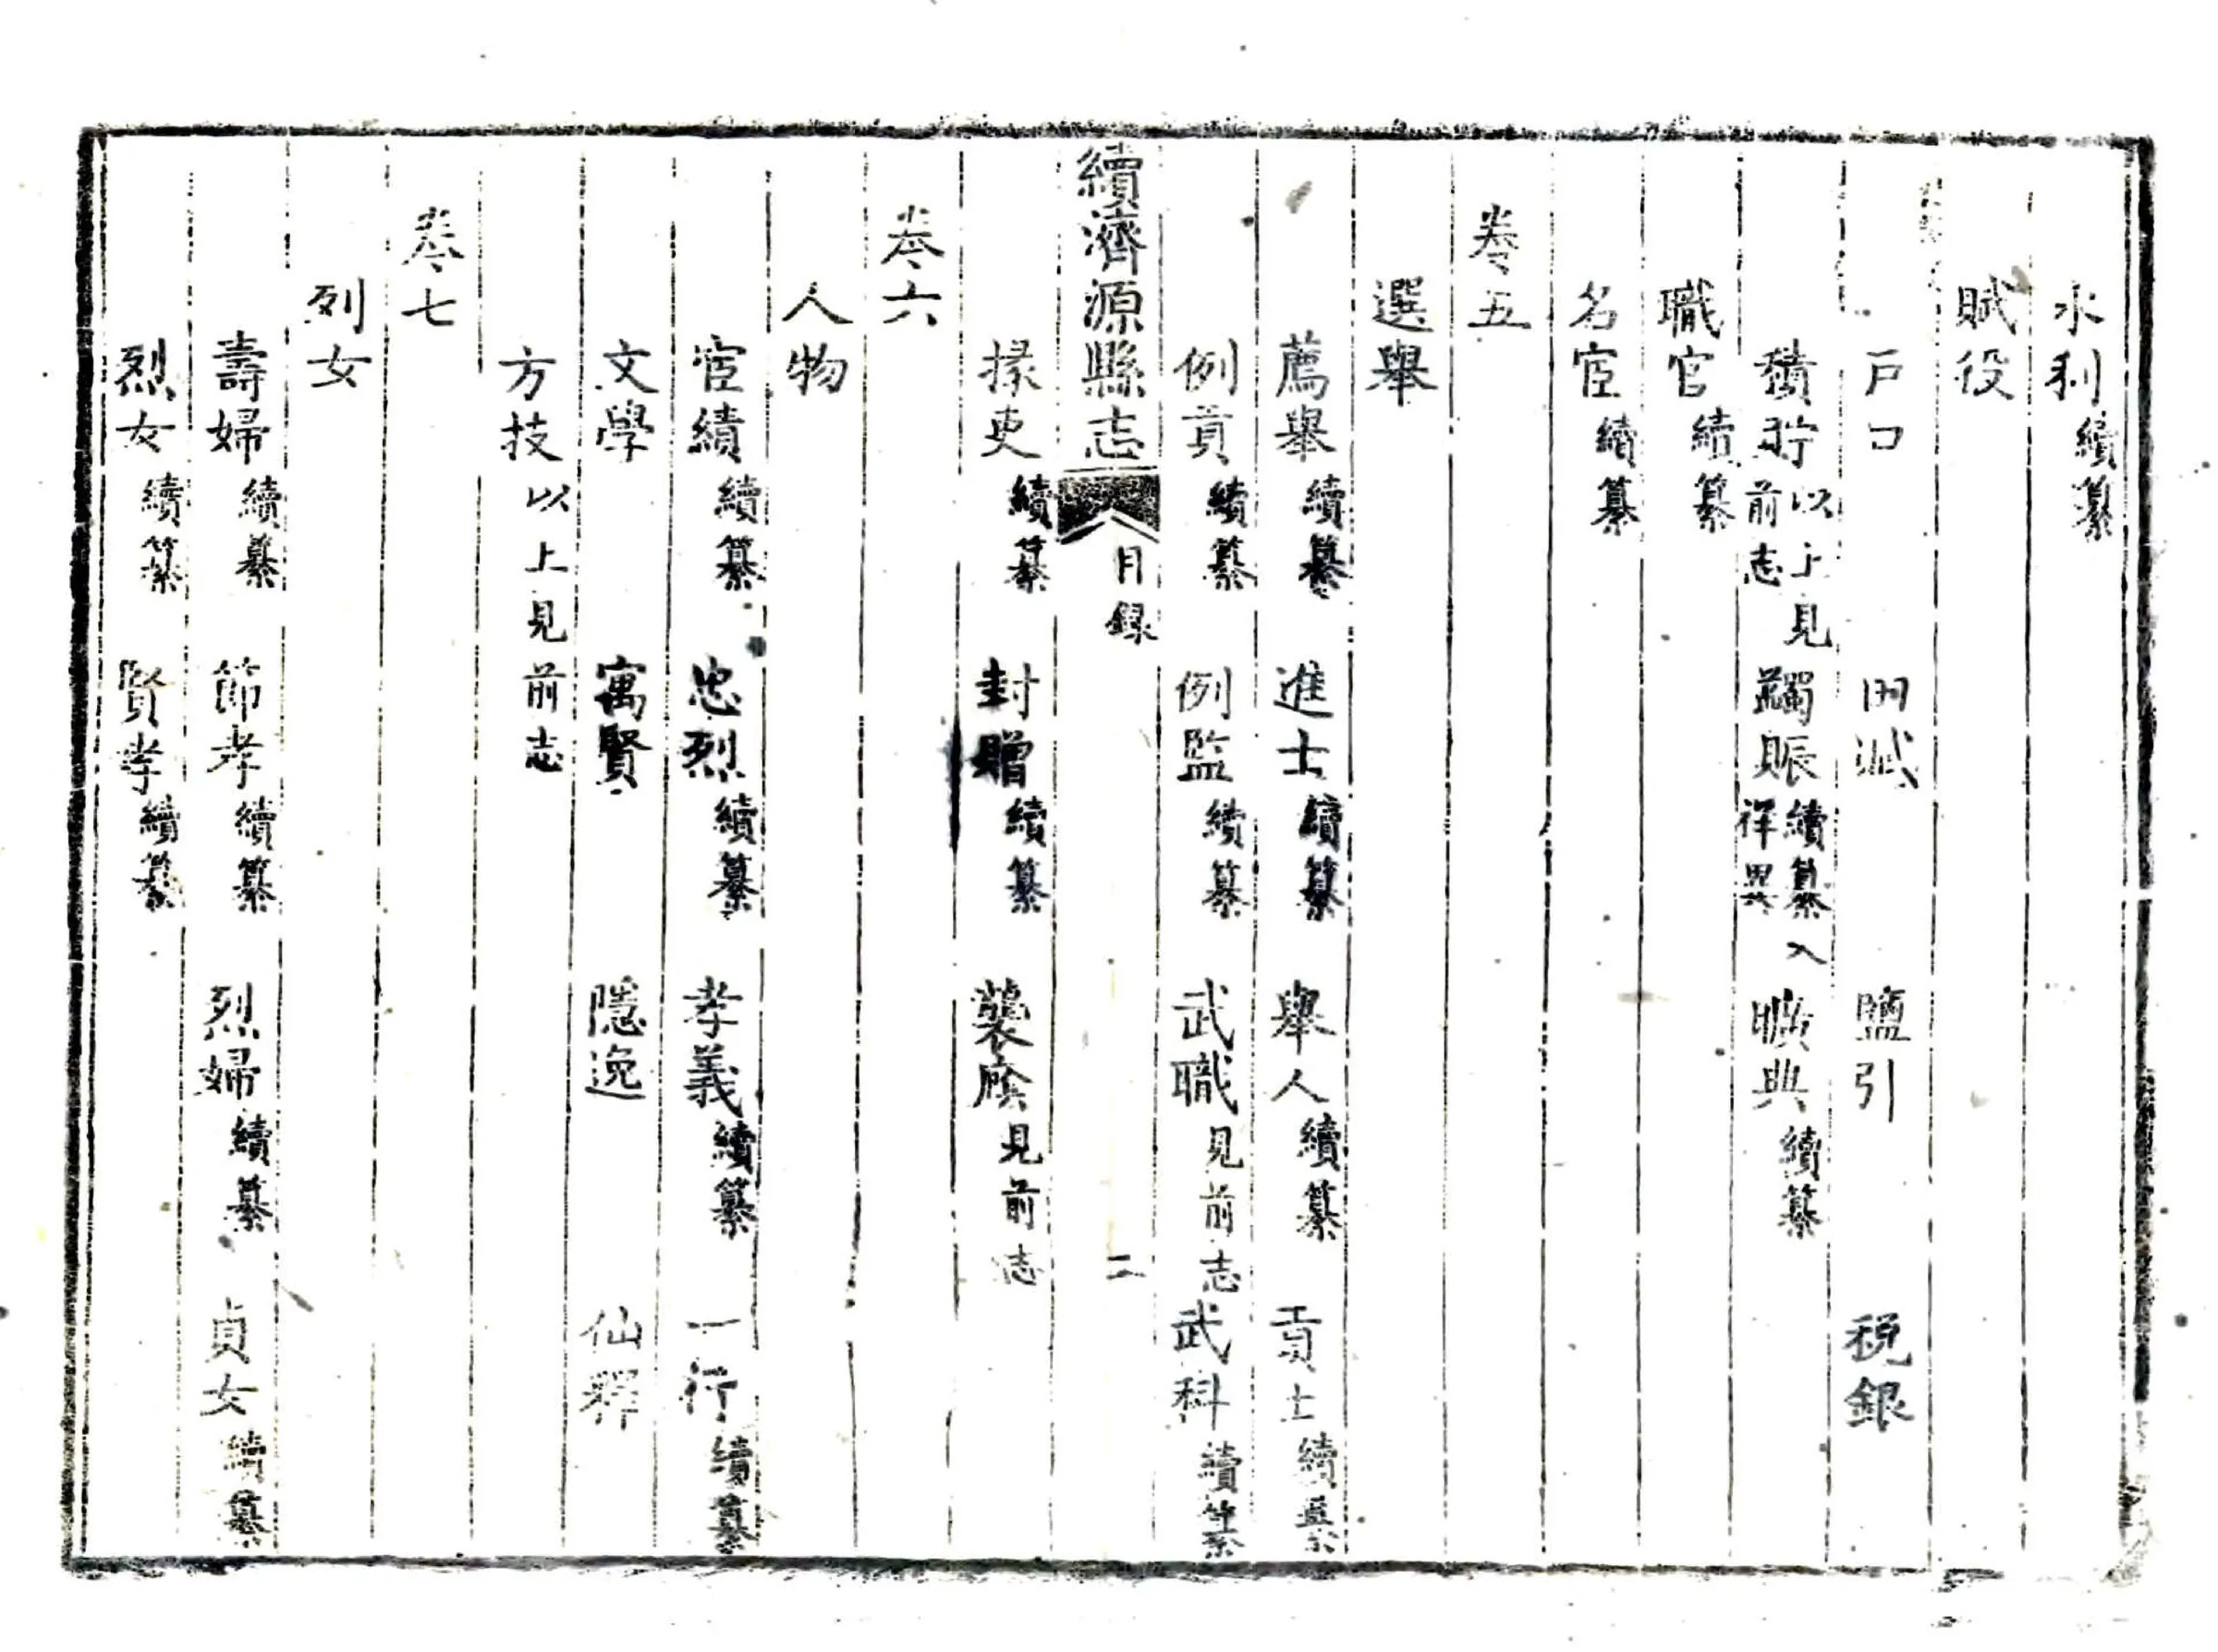 水利續纂
賦役
戶口 田賦 鹽引 稅銀
積貯以上見前志 蠲賑續纂入祥異 曠典續纂
職官續纂
名宦續纂
卷五
選舉
薦舉續纂 進士續纂 舉人續纂 貢士續纂
例貢續纂 例監續纂 武職見前志 武科續纂
續濟源縣志 目錄 二
掾吏續纂 封贈續纂 襲廕見前志
卷六
人物
宦績續纂 忠烈續纂 孝義續纂 一行續纂
文學 寓賢 隱逸 仙釋
方技以上見前志
卷七
列女
壽婦續纂 節孝續纂 烈婦續纂 貞女續纂
烈女續纂 賢孝續纂